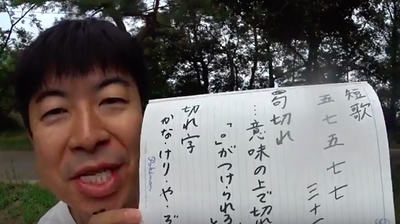 短歌
五七五七七 三十
句切れ
…意味の上で切れ
「。」がつけられる
切れ字
かな・けり・や・ぞ